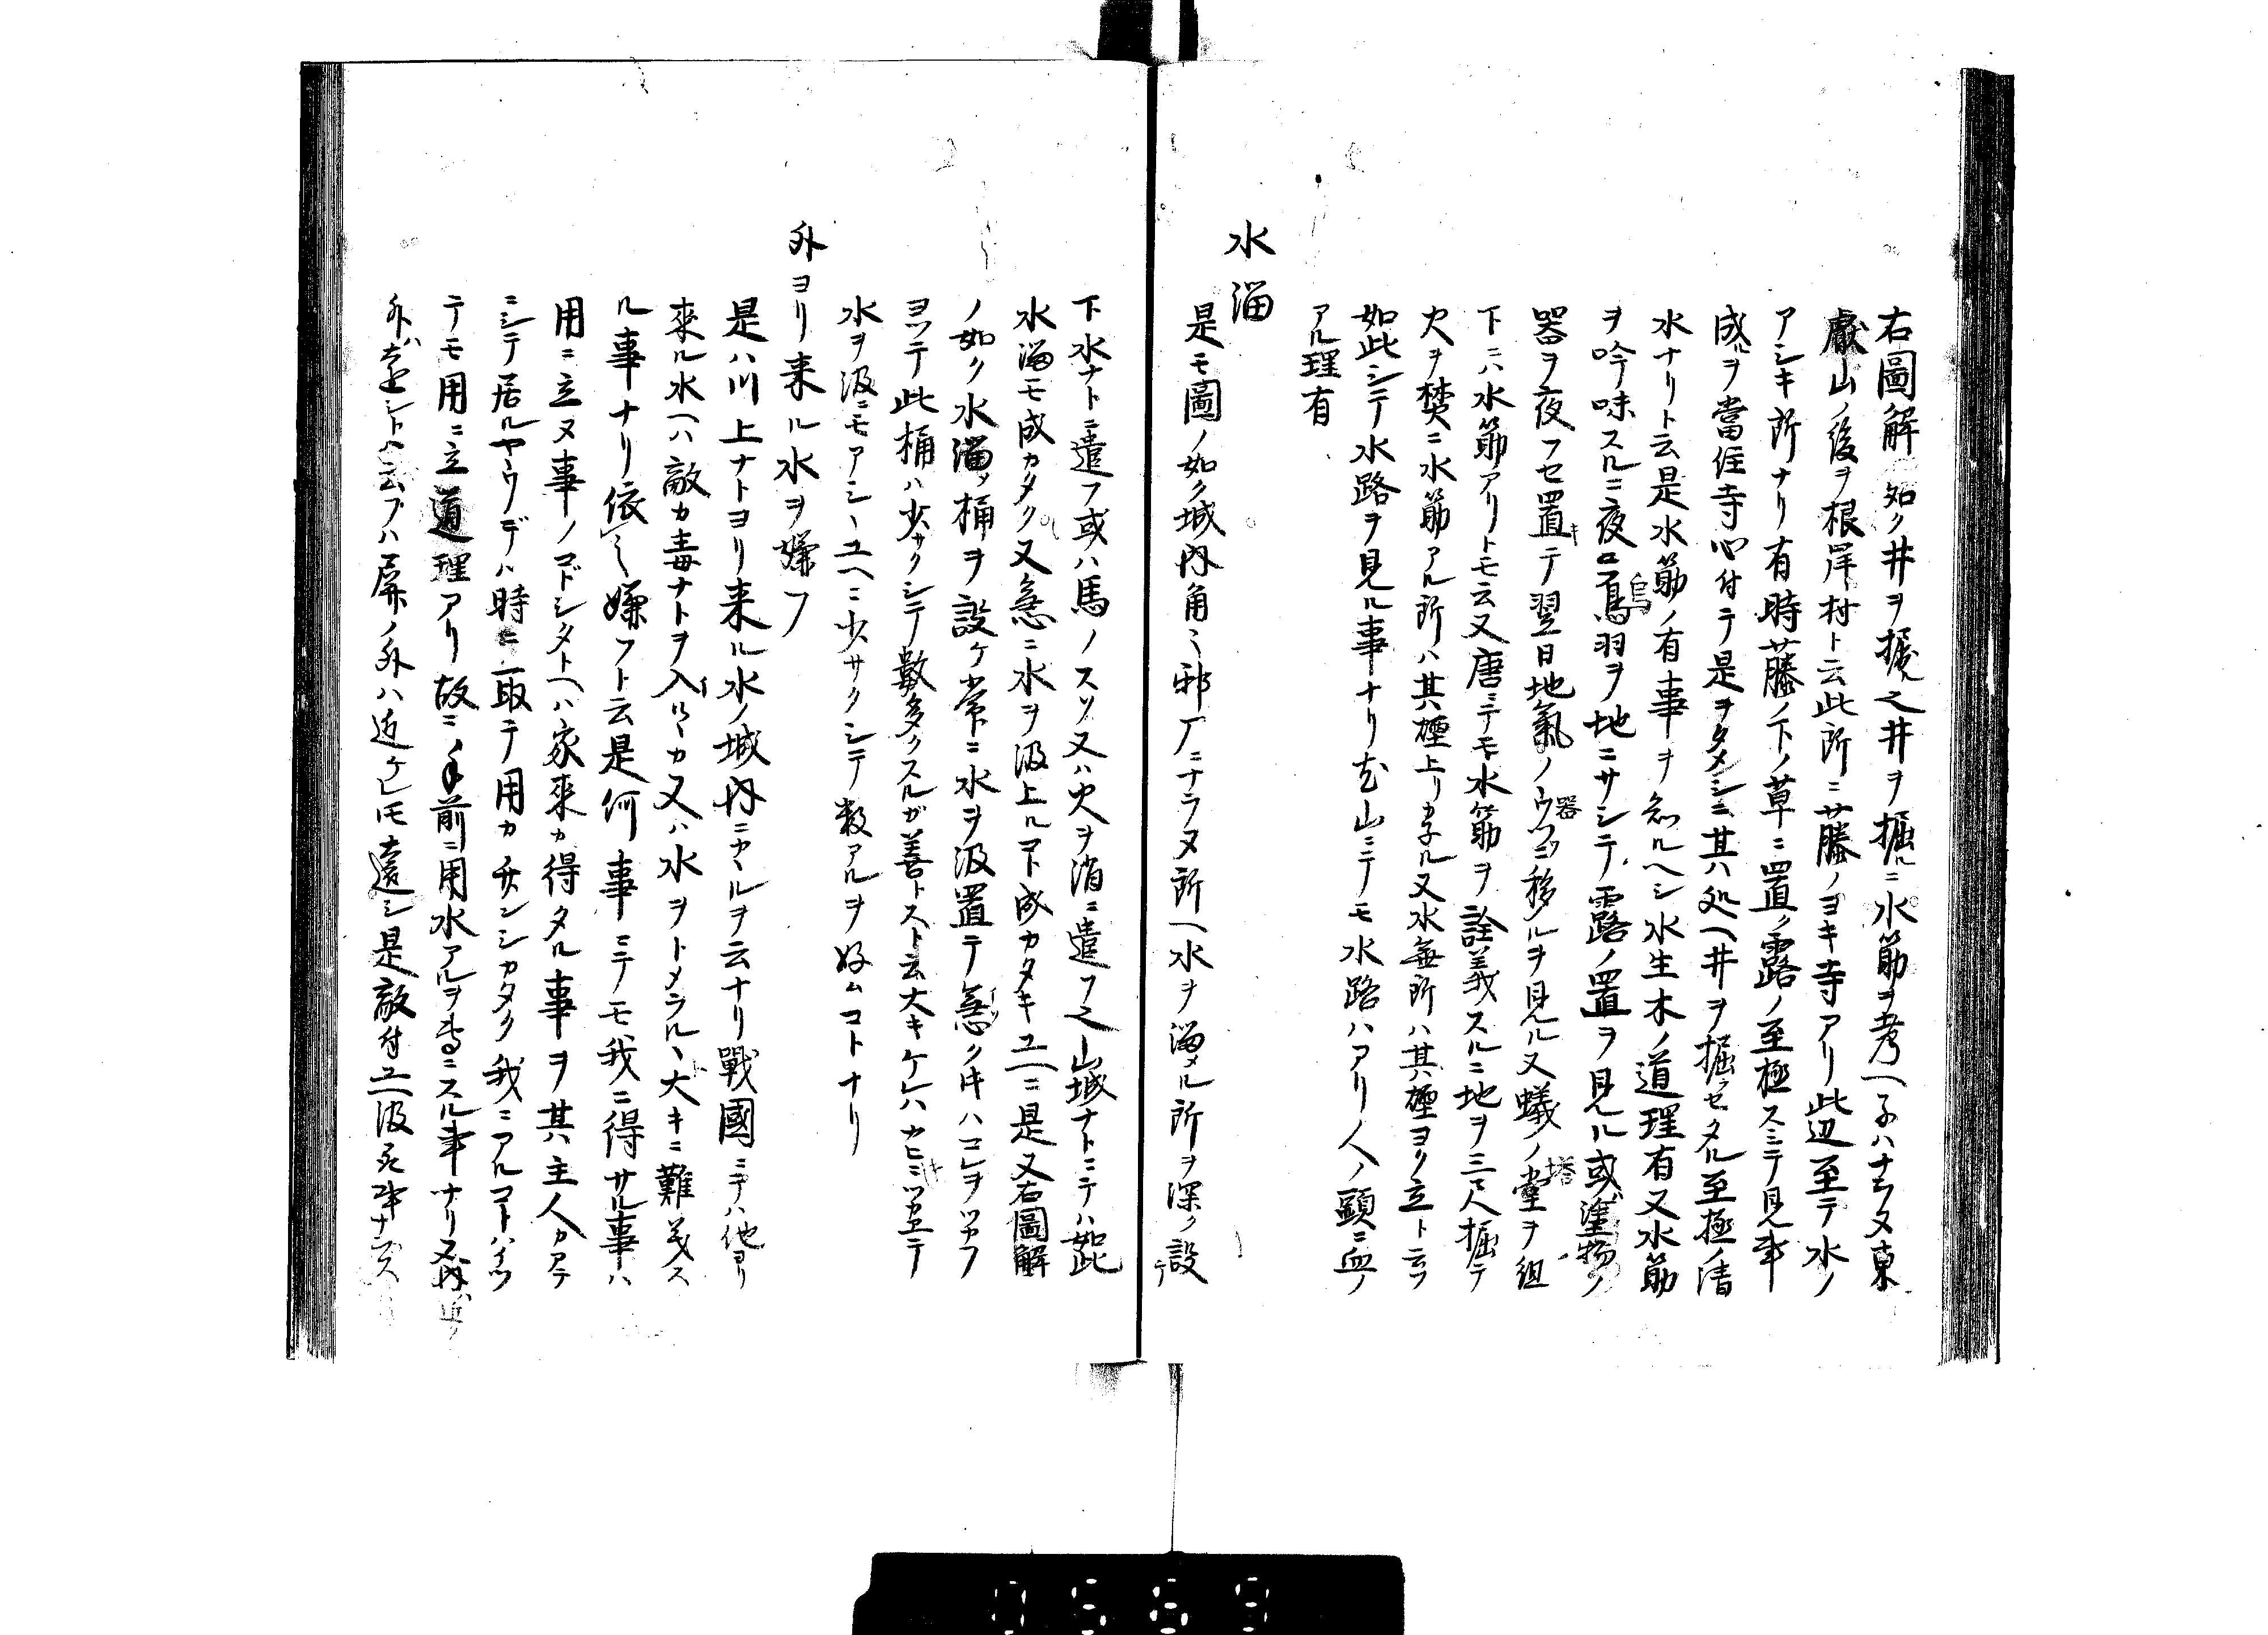 右圖解ノ如ク井ヲ掘ヘ之井ヲ掘ルニ水筋ヲ考ヘ子ハナラヌ東
叡山ノ後ヲ根岸村ト云此所ニ藤ノヨキ寺アリ此辺至テ水ノ
アシキ所ナリ有時藤ノ下ノ草ニ置ク露ノ至極スミテ見事
成ルヲ當住寺心付テ是ヲタメシニ其処ヘ井ヲ掘ラセタル至極ノ清
水ナリト云是水筋ノ有事ヲ知ルヘシ水生木ノ道理有又水筋
ヲ吟味スルニ夜ル烏羽ヲ地ニサシテ露ノ置ヲ見ル或塗物ノ
器ヲ夜フセ置キテ翌日地氣ノウツニ移ルヲ見ル又蟻ノ塔ヲ組
下ニハ水筋アリトモ云又唐ニテモ水筋ヲ詮義スルニ地ヲ三尺掘テ
火ヲ焚ニ水筋アル所ハ其煙上リカ子ル又水無所ハ其煙ヨク立ト云フ
如此シテ水路ヲ見ル事ナリ尤山ニテモ水路ハアリ人ノ頭ニ血ノ
アル理有
水溜
是モ圖ノ如ク城内角々邪广ニナラヌ所ヘ水ヲ溜メル所ヲ深ク設テ
下水ナトニ遣フ或ハ馬ノスソ又ハ火ヲ消ニ遣フ之山城ナトニテハ如此
水溜モ成カタク又急ニ水ヲ汲上ルヿ成カタキユヘニ是又右圖解
ノ如ク水溜ノ桶ヲ設ケ常ニ水ヲ汲置テ急クトキハコレヲツカフ
ヨツテ此桶ハ少サクシテ數多クスルガ善トスト云大キケレハカヒニツカエテ
水ヲ汲ニモアシヽユヘニ少サクシテ数アルヲ好ムコトナリ
外ヨリ来ル水ヲ嫌フ
是ハ川上ナトヨリ来ル水ノ城内ニカヽルヲ云ナリ戰國ニテハ他ヨリ
來ル水ヘハ敵カ毒ナトヲ入ルヽカ又ハ水ヲトメラルヽト大キニ難義ス
ル事ナリ依之嫌フト云是何事ニテモ我ニ得サル事ハ
用ニ立ヌ事ノヿドシタトヘハ家來カ得タル事ヲ其主人カアテ
ニシテ居ルヤウデハ時ニ取テ用カサンシカタク我ニアルヿハイツ
テモ用ニ立道理アリ故ニ手前ニ用水アルヲ専ニスル事ナリ又内ハ近ク
外ハ遠シト云フハ屏ノ外ハ近ケレモ遠シ是敵付ユヘ汲ルヽ事ナラス